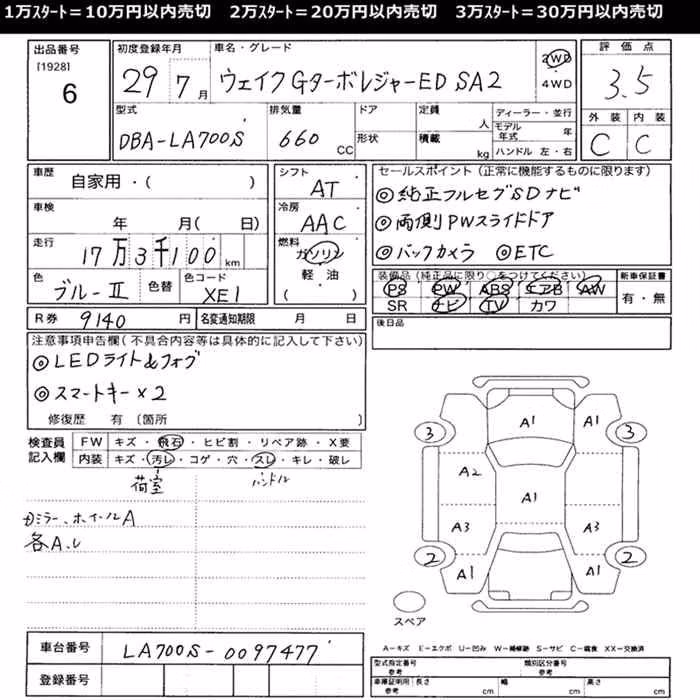 1万ｽﾀｰﾄ＝10万円以内売切　2万ｽﾀｰﾄ＝20万円以内売切　3万ｽﾀｰﾄ＝30万円以内売切
出品番号 [1928] 6
初度登録年月 29 7月
車名・グレード ウェイク GターボレジャーED SA2
2WD ・ 4WD
評価点 3.5
外装 内装
C C
型式 DBA-LA700S
排気量 660 CC
ドア 形状
定員 人 積載 kg
ディーラー・並行
モデル年式 年
ハンドル 左・右
車歴 自家用・( )
車検 年 月( 日)
走行 17万3千100 km
色 ブルーII 色替 色コード XE1
シフト AT
冷房 AAC
燃料 ガソリン 軽・油 ( )
セールスポイント（正常に機能するものに限ります）
◎純正フルセグSDナビ
◎両側PWスライドドア
◎バックカメラ ◎ETC
装備品（純正品に限り○をつけてください）
PS PW ABS エアB AW
SR ナビ TV カワ
新車保証書 有・無
R券 9140 円 名変通知期限 月 日
後日品
注意事項申告欄（不具合内容等は具体的に記入して下さい）
◎LEDライト&フォグ
◎スマートキー×2
修復歴 有〔箇所 〕
検査員記入欄
FW キズ・飛石・ヒビ割・リペア跡・X要
内装 キズ・汚レ・コゲ・穴・スレ・キレ・破レ
荷室 ハンドル
ミラー、ホイールA
各A、
A1
A1 A1
3 3
A2
A1
A3 A3
2 2
A1 A1
スペア
車台番号 LA700S-0097477
登録番号
A－キズ E－エクボ U－凹み W－補修跡 S－サビ C－腐食 XX－交換済
型式指定番号 参考 類別区分番号 参考
車検証明日 参考 長さ cm 幅 cm 高さ cm